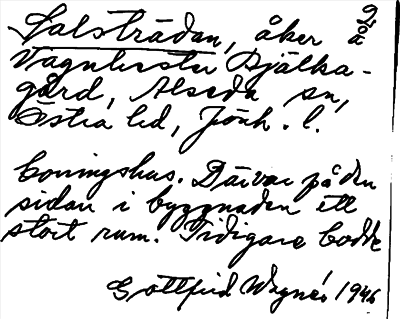 Salsträdan, åker på
Vagnhester Bjälka-
gård, Alseda sn,
Östra hd, Jönk. l.
boningshus. Där var på den
sidan i byggnaden ett
stort rum. Tidigare bodde
Gottfrid Wagnér 1946